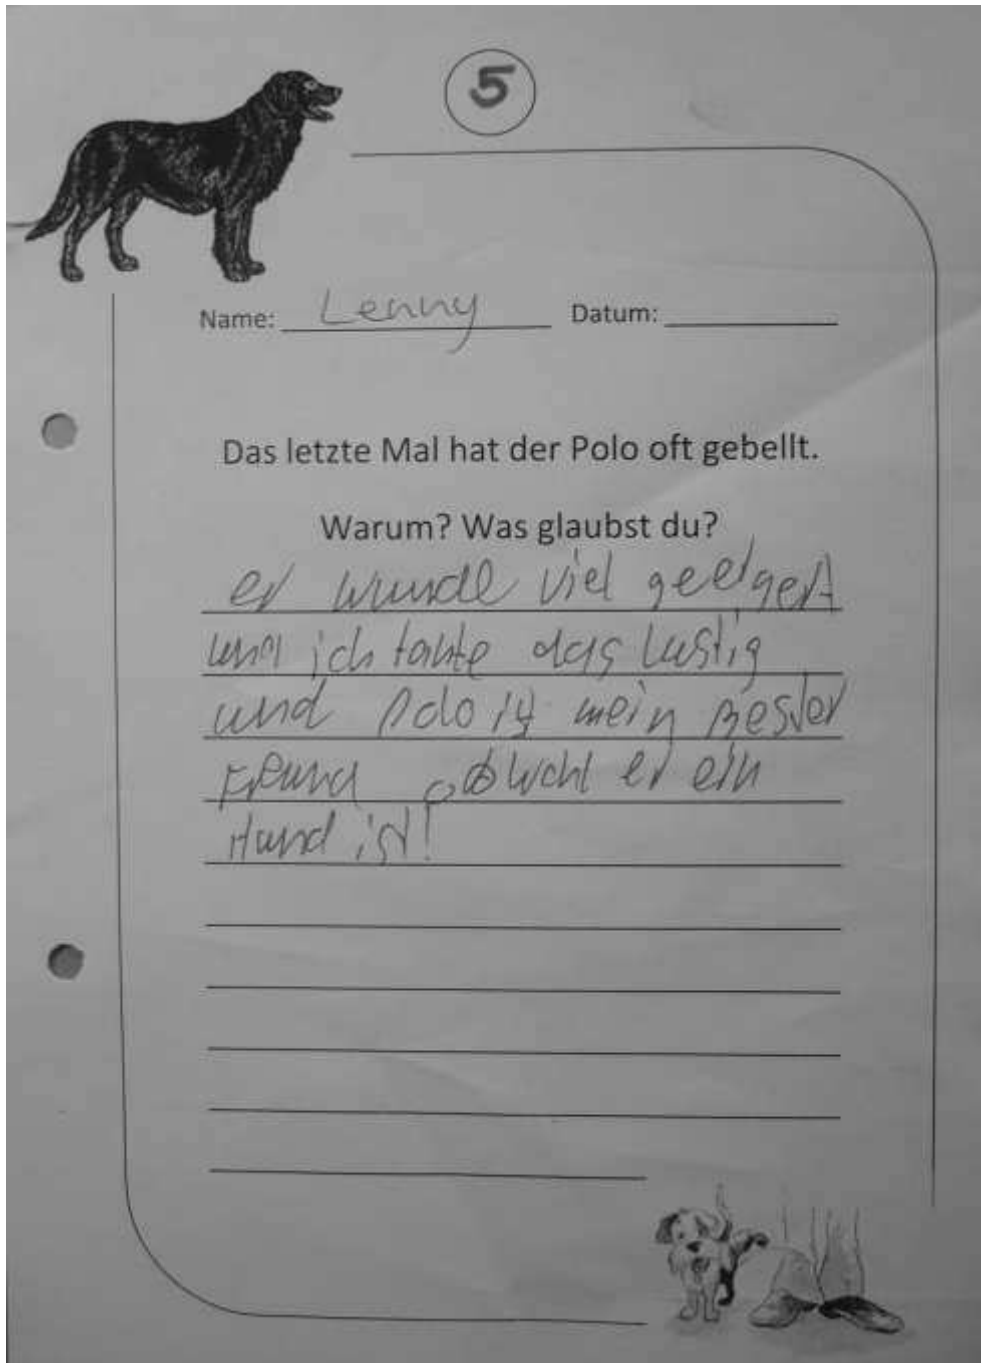 5
Name: Lenny Datum:
Das letzte Mal hat der Polo oft gebellt.
Warum? Was glaubst du?
er wurde viel geergert
und ich das lustig
und Polo ist mein Bester
Freund obwohl er ein
Hund ist!